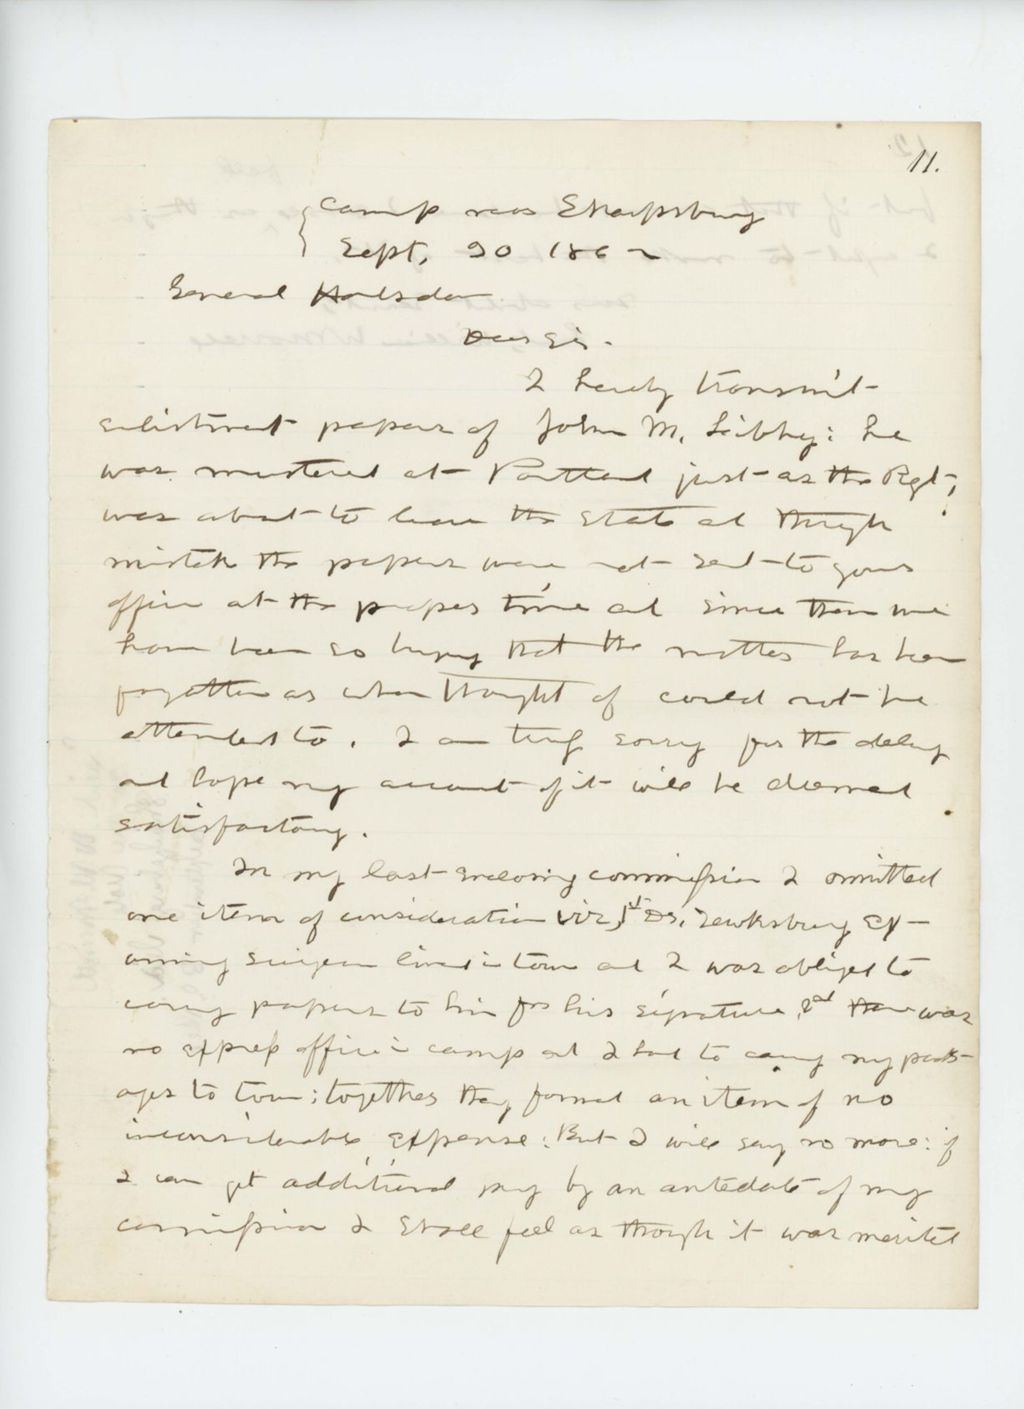 11.
Camp near Sharpsburg
Sept, 30 1862
General Hodsdon
Dear Sir.
I hereby transmit
enlistment papers of John M. Libby: he
was mustered at Portland just as the Rgt,
was about to leave the state and through
mistake the papers were not sent to your
office at the proper time and since then we
have been so busy that the matter has been
forgotten or when thought of could not be
attended to. I am truly sorry for the delay
and hope my account of it will be deemed
satisfactory.
In my last enclosing commission I omitted
one item of consideration viz, 1st Dr. Tewksbury Ex-
amining surgeon lived in town and I was obliged to
carry papers to him for his signature, 2nd there was
no express office in camp and I had to carry my pack-
ages to town; together they formed an item of no
inconsiderable expense: But I will say no more: if
I can get additional pay by an antedate of my
commission I shall feel as though it was merited